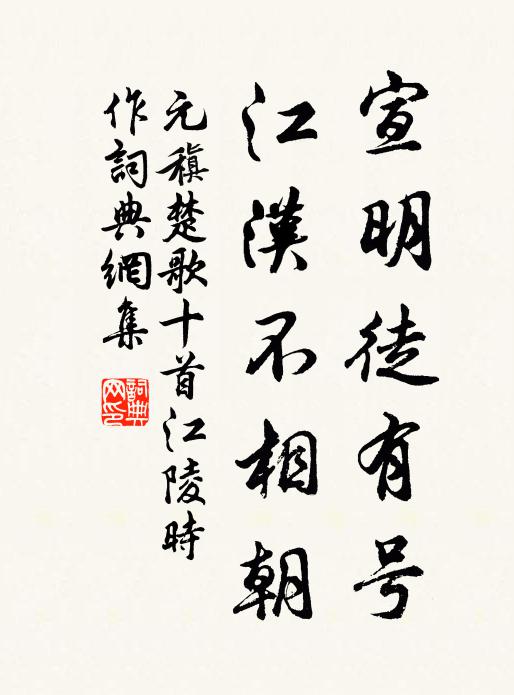 宣明徒有号
江漢不相朝
元稹楚歌十首江陵時
作詞典網集
詞典
网印